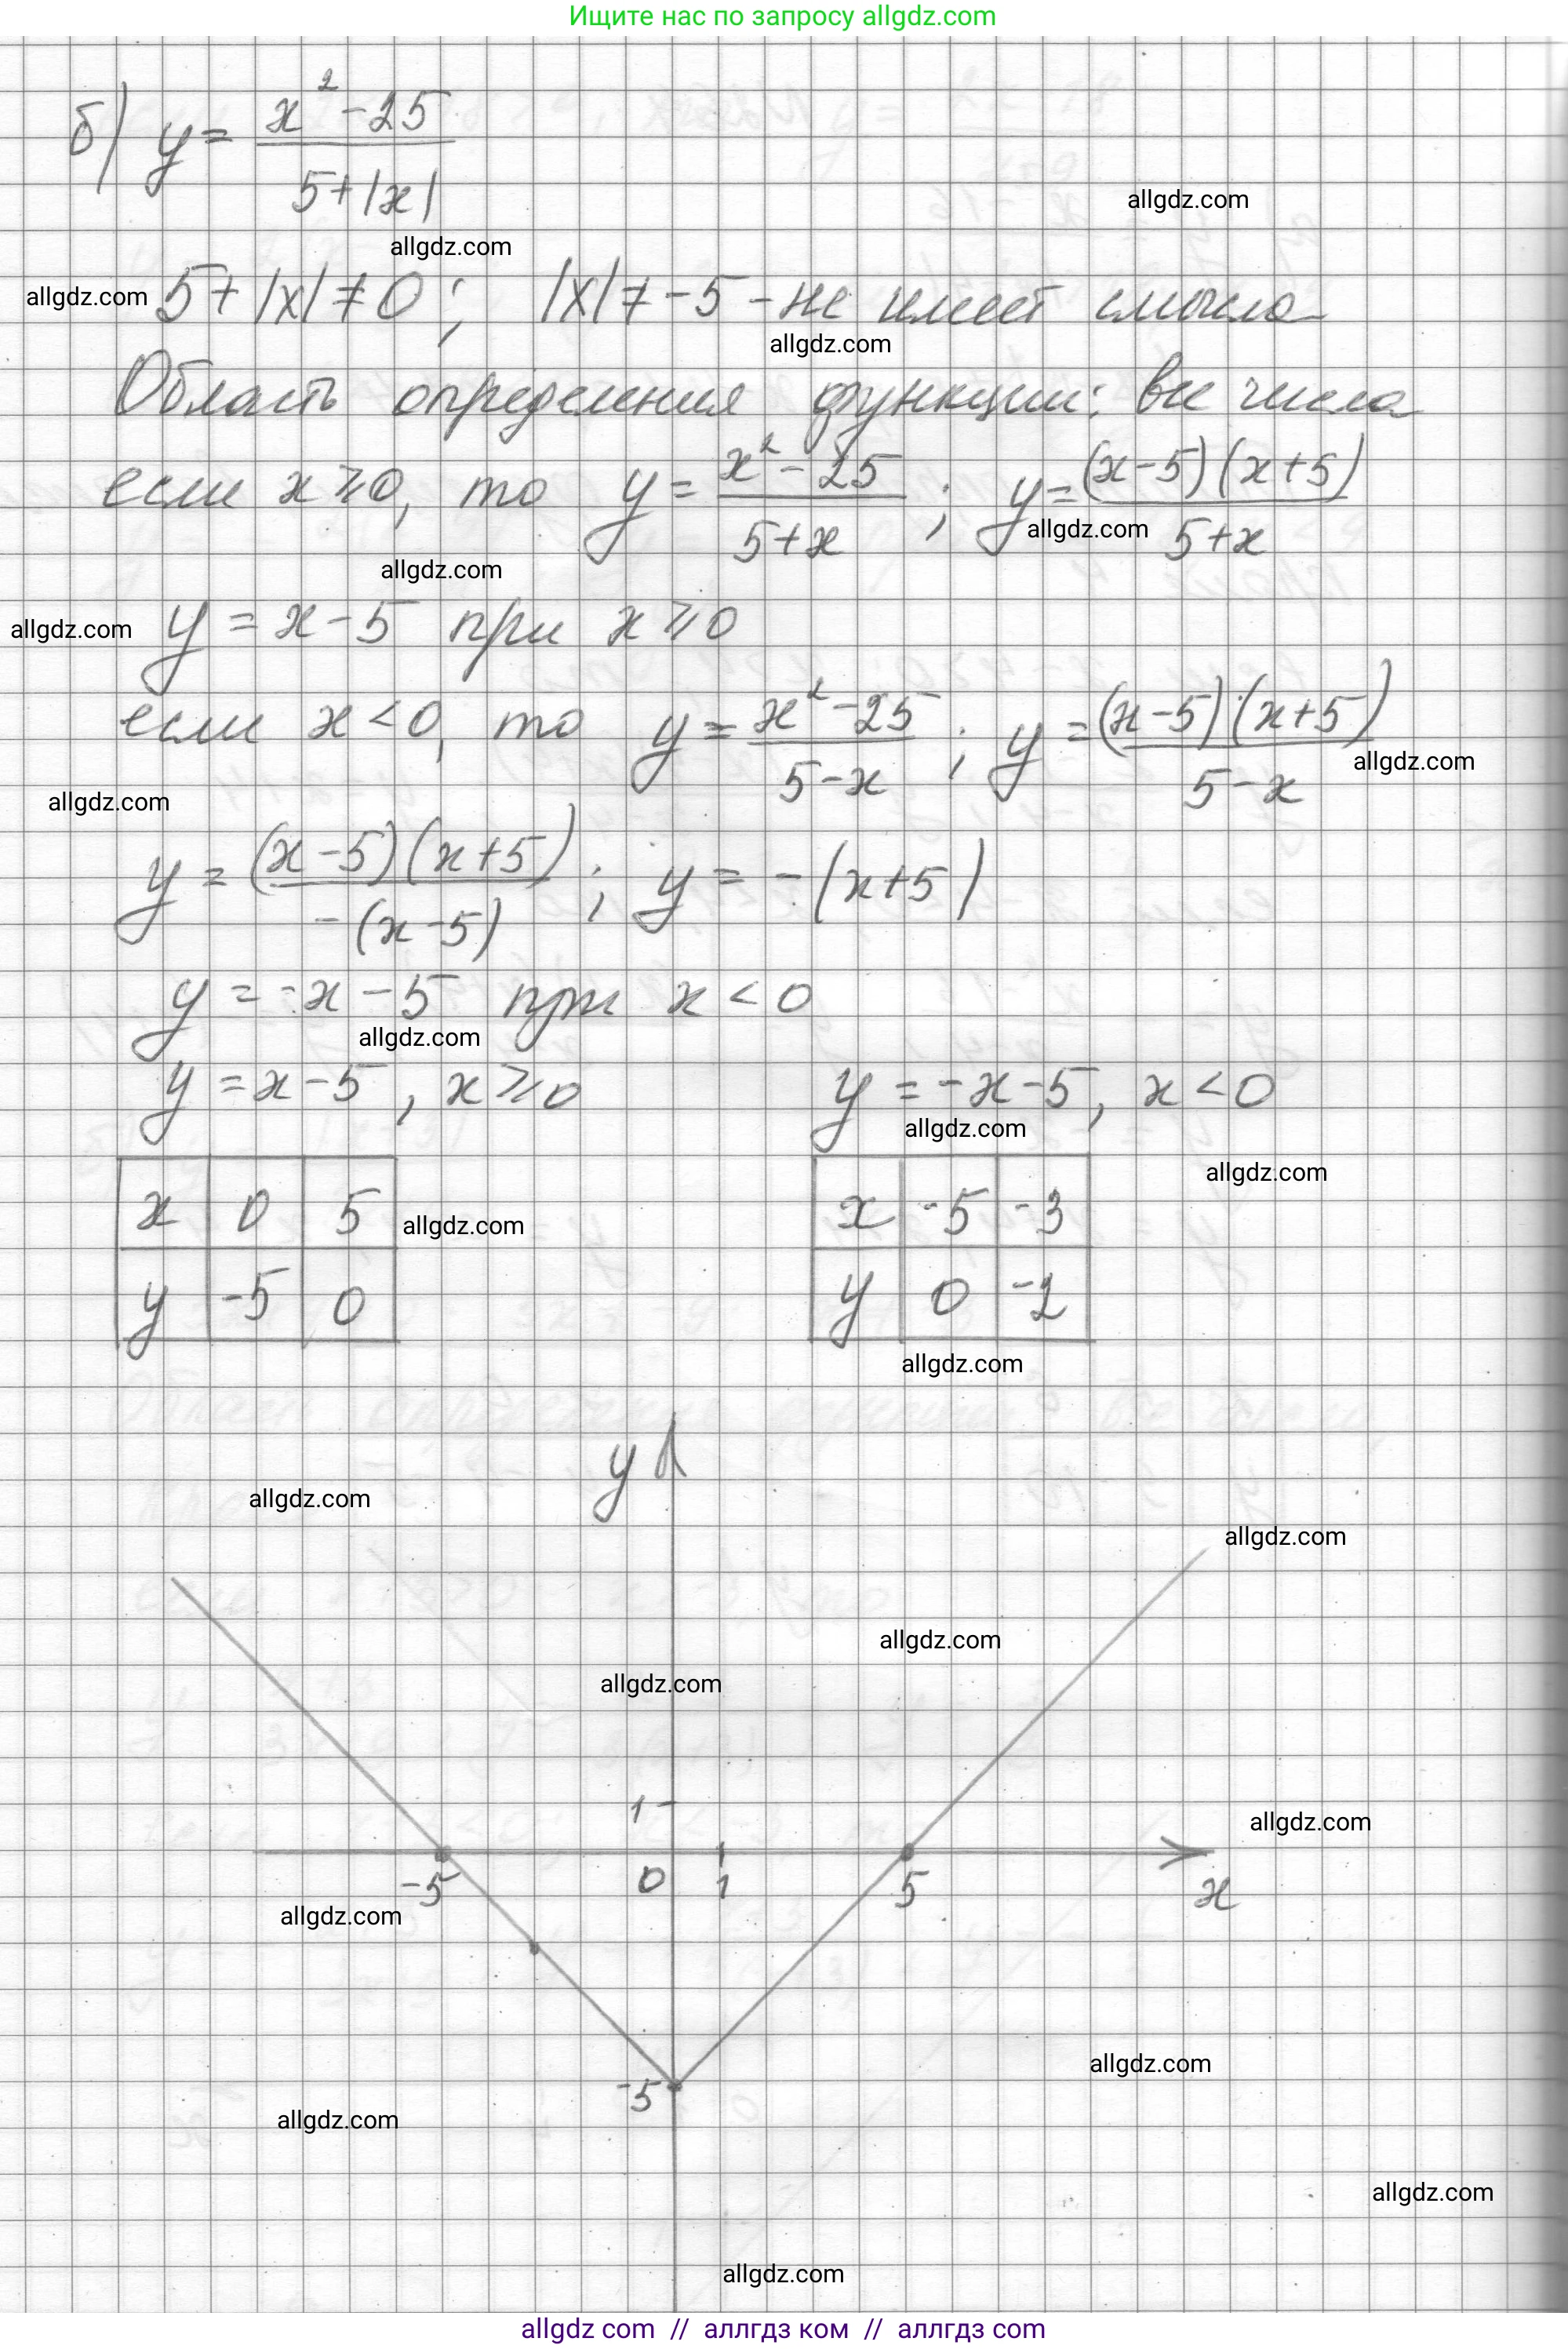 Ищите нас по запросу allgdz.com
б) y = (x² - 25) / (5 + |x|)
allgdz.com
allgdz.com
allgdz.com
5 + |x| ≠ 0; |x| ≠ -5 - не имеет смысла
allgdz.com
Область определения функции: все числа
если x ≥ 0, то y = (x² - 25) / (5 + x); y = (x - 5)(x + 5) / (5 + x)
allgdz.com
allgdz.com
allgdz.com
y = x - 5 при x ≥ 0
если x < 0, то y = (x² - 25) / (5 - x); y = (x - 5)(x + 5) / (5 - x)
allgdz.com
allgdz.com
y = (x - 5)(x + 5) / -(x - 5); y = -(x + 5)
y = -x - 5 при x < 0
allgdz.com
y = x - 5, x ≥ 0 y = -x - 5, x < 0
allgdz.com
allgdz.com
x 0 5 x -5 -3
allgdz.com
y -5 0 y 0 -2
allgdz.com
y
allgdz.com
allgdz.com
allgdz.com
allgdz.com
1
allgdz.com
-5 0 1 5 x
allgdz.com
allgdz.com
-5
allgdz.com
allgdz.com
allgdz.com
allgdz com // аллгдз ком // аллгдз com